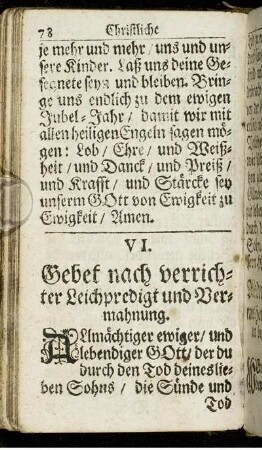 78 Christliche
je mehr und mehr / uns und un-
sere Kinder. Laß uns deine Ge-
segnete seyn und bleiben. Brin-
ge uns endlich zu dem ewigen
Jubel-Jahr / damit wir mit
allen heiligen Engeln sagen mö-
gen: Lob / Ehre / und Weiß-
heit / und Danck / und Preiß /
und Krafft / und Stärcke sey
unserm GOtt von Ewigkeit zu
Ewigkeit / Amen.
VI.
Gebet nach verrich-
ter Leichpredigt und Ver-
mahnung.
ALlmächtiger ewiger / und
lebendiger GOtt / der du
durch den Tod deines lie-
ben Sohns / die Sünde und
Tod